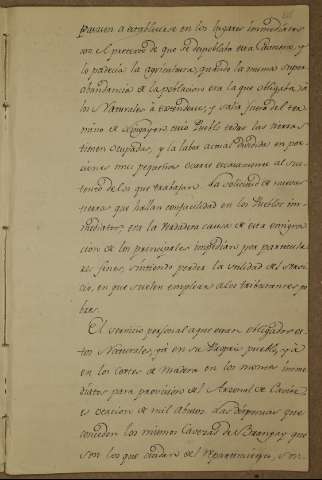 pasasen a establecerse en los lugares inmediatos
con el pretexto de que se despoblaba esta Cavecera, y
lo padecia la agricultura, quando la misma super
abundancia de la poblacion era la que obligaba a
los Naturales a extenderse, y salir fuera del ter
mino de cuio Pueblo todas las tierras
tienen ocupadas, y la labor actual dividida en por
ciones mui pequeñas ocurre escasamente al sus-
tento de los que trabajan. La solicitud de nuevas
tierras que hallan con facilidad en los Pueblos in-
mediatos, era la verdadera causa de esta emigra
cion que los principales impedian por particula
res fines, sintiendo perder la utilidad del servi
cio, en que suelen emplear a los tributantes po
bres.
El servicio personal a que estan obligados es
tos Naturales, ya en su Proprio pueblo, y ya
en los cortes de Madera en los montes inme
diatos para provision del Arsenal de Cavite
es ocasion de mil abusos. Las dispensas que
conceden los mismos Cavezas de Barangay que
son los que cuidan del repartimiento, son